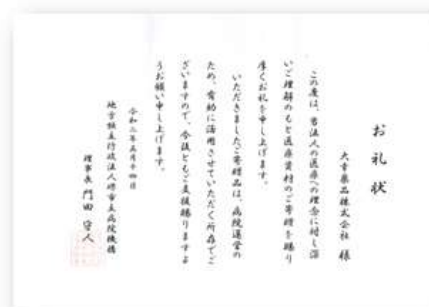 お礼状
大幸薬品株式会社 様
この度は、当法人の医療への理念に対し深
いご理解のもと医療資材のご寄贈を賜り
厚くお礼を申し上げます。
いただきましたご寄贈品は、病院運営の
ため、有効に活用させていただく所存でご
ざいますので、今後ともご支援賜りますよ
うお願い申し上げます。
令和二年五月十四日
地方独立行政法人堺市立病院機構
理事長 門田 守人